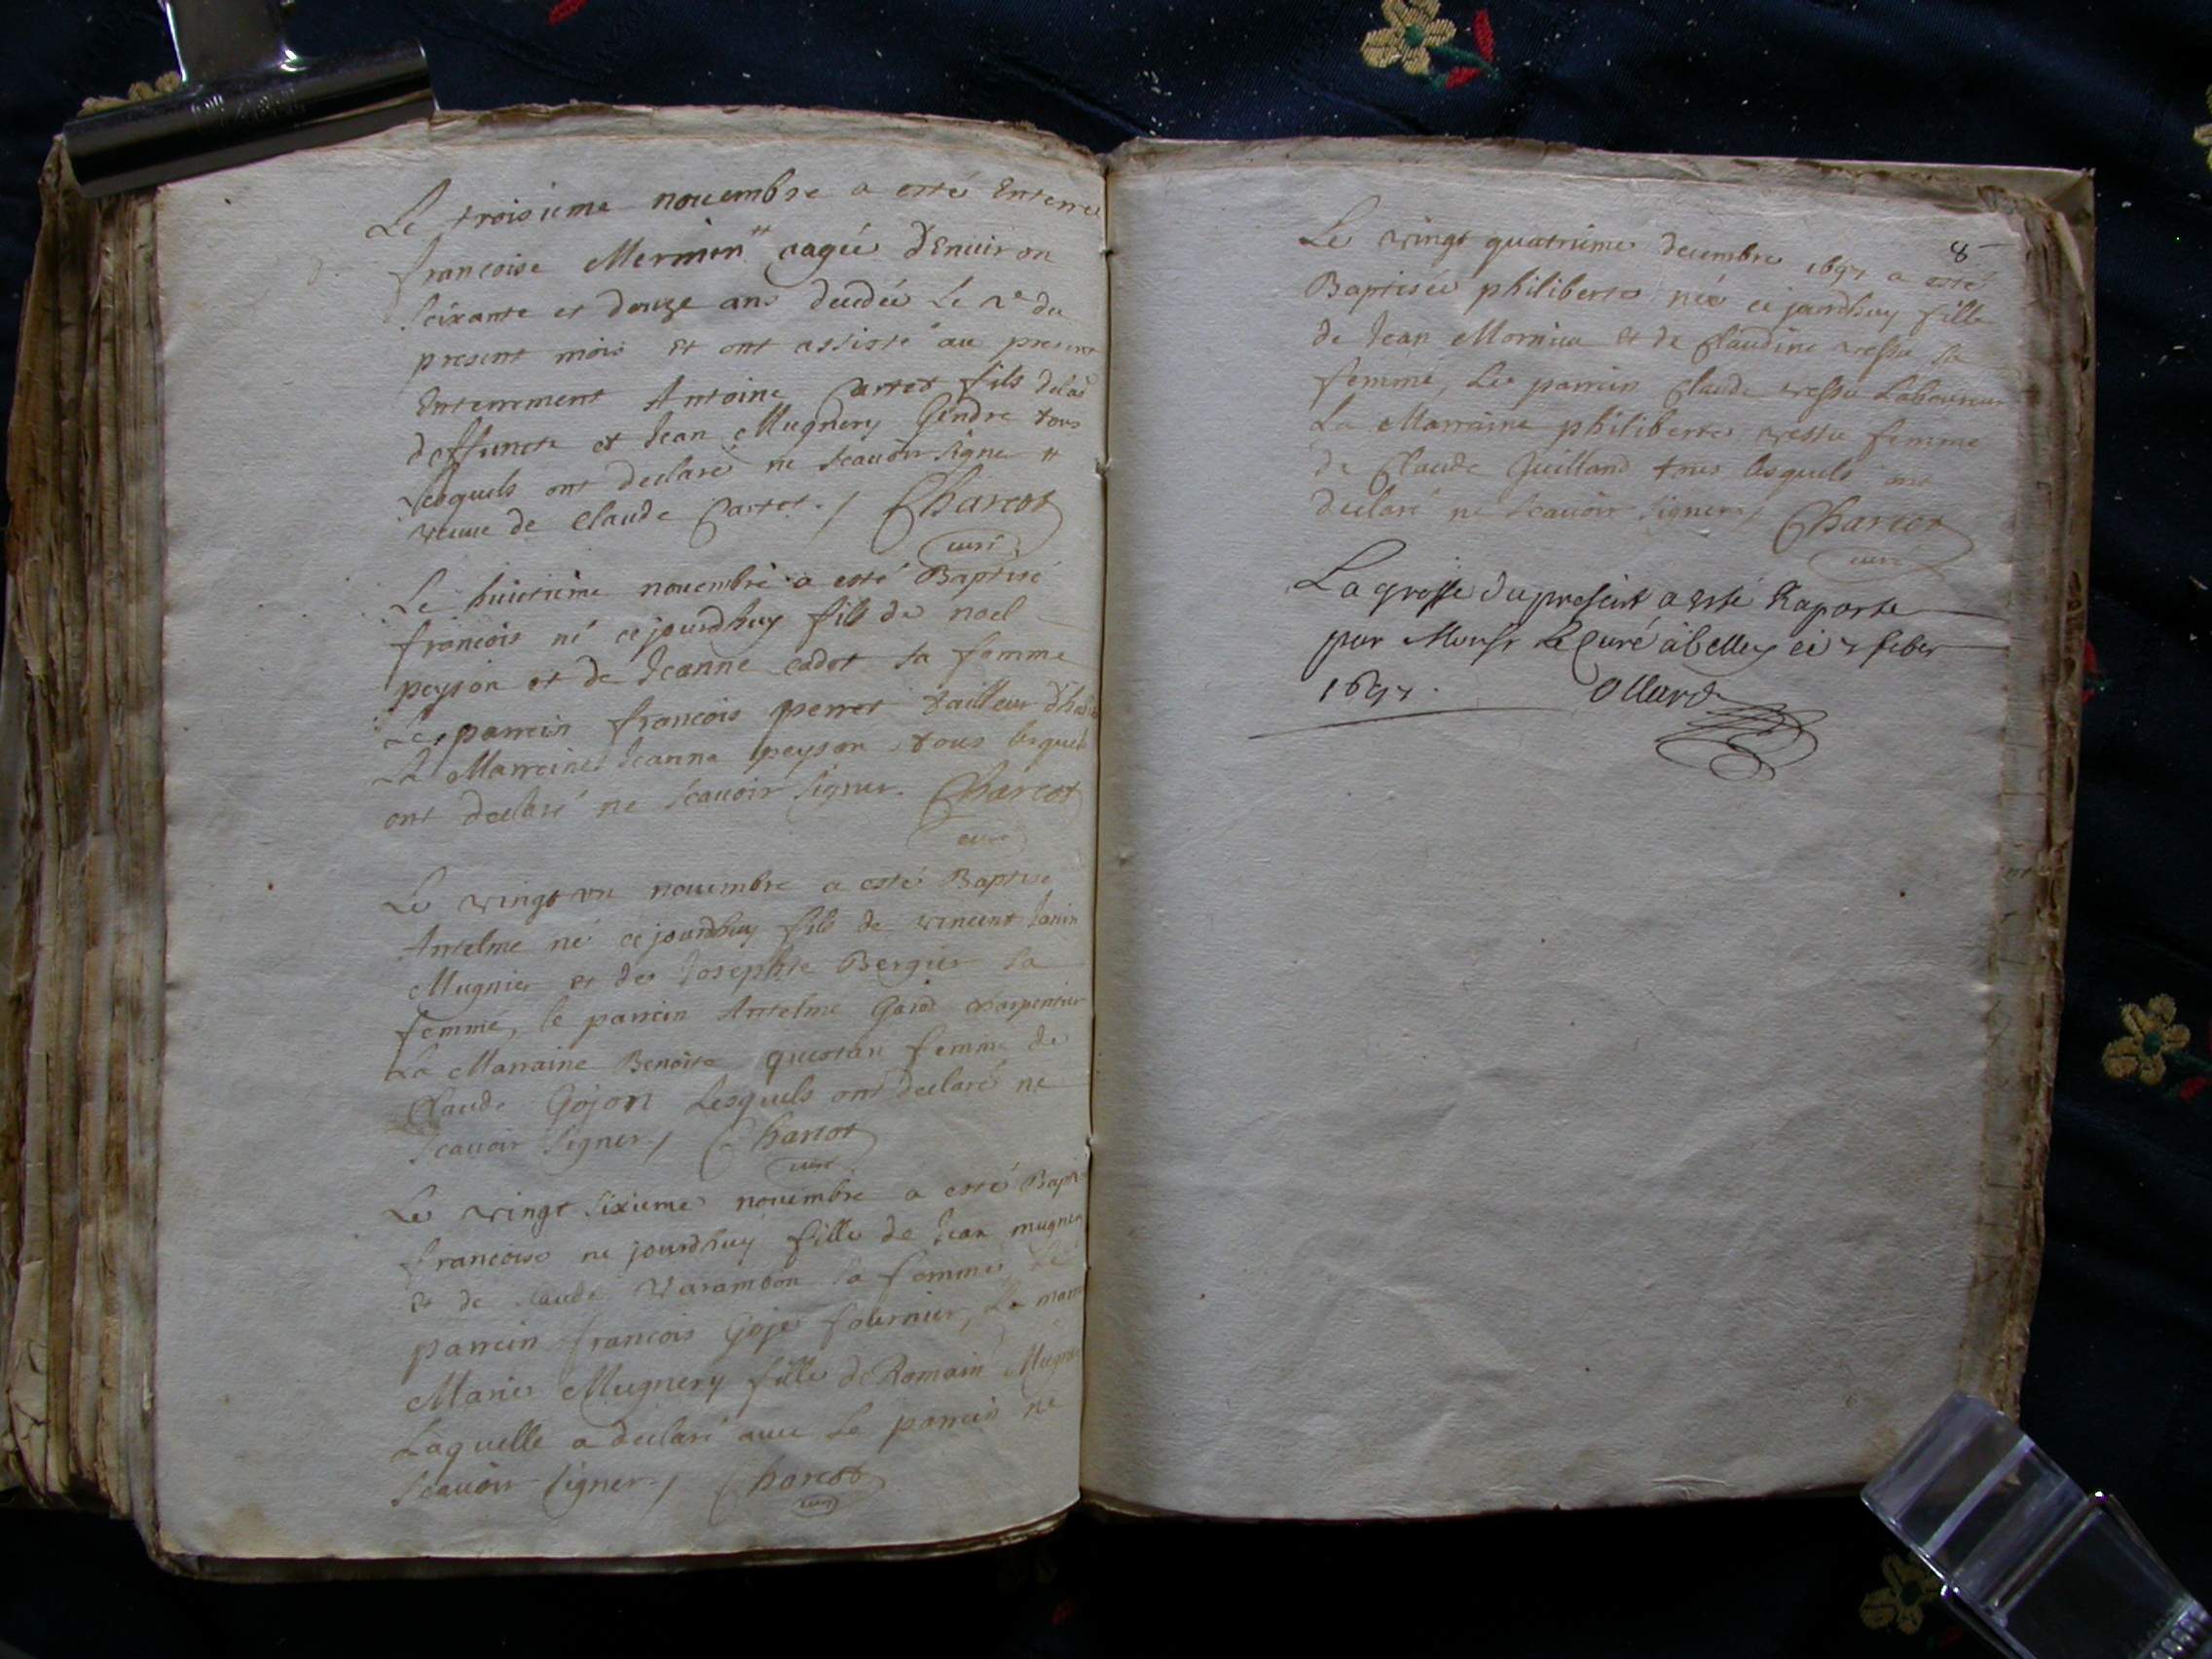 Le troisieme nouembre a esté Enterré
francoise Mermin " aagée d'Enuiron
soixante et douze ans decedée Le 2e du
present mois Et ont assisté au present
Enterrement Antoine Cartet fils dela
deffuncte et Jean Mugnery Gendre tous
lesquels ont declaré ne scauoir signe "
veuue de claude Cartet. / Charcot
curé
Le huictieme nouembre a esté Baptisé
francois né cejourdhuy fils de noel
peyson et de Jeanne cadot sa femme
Le parrein francois perret tailleur d'habi
La Marreine Jeanne peyson tous lesquels
ont declaré ne scauoir signer. Charcot
curé
Le vingt vn nouembre a esté Baptisé
Antelme né cejourdhuy fils de vincent Janin
Mugnier et de Josephte Bergier sa
femme, le parrein Antelme charpentier
La Marraine Benoite femme de
Claude Gojon Lesquels ont declaré ne
scauoir signer / Charcot
curé
Le vingt sixieme nouembre a esté Bapti
francoise ne jourdhuy fille de Jean mugnery
et de claude Varambon sa femme Le
parrein francois Goje fournier, La marr
Marie Mugnery fille de Romain Mugne
Laquelle a declaré auec Le parrein ne
scauoir signer / Charcot
curé
8
Le vingt quatrieme decembre 1697 a esté
Baptisée philiberte née cejourdhuy fille
de Jean Mornieu et de Claudine vessu sa
femme, Le parrein Claude vessu Laboureur
La Marraine philiberte vessu femme
de Claude Guilland tous lesquels ont
declaré ne scauoir signer / Charcot
curé
La grosse du present a esté Raporte
par Monsr Le Curé à belley ce 7 feber
1697. Ollard